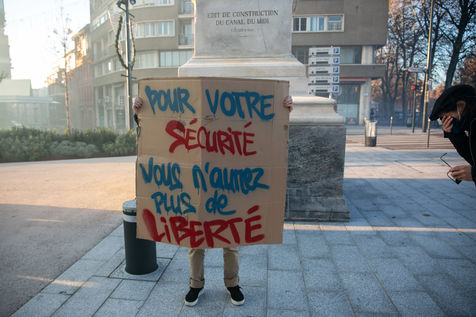 EDIT DE CONSTRUCTION
DU CANAL DU MIDI
POUR VOTRE
SÉCURITÉ
VOUS N'AUREZ
PLUS DE
LIBERTÉ